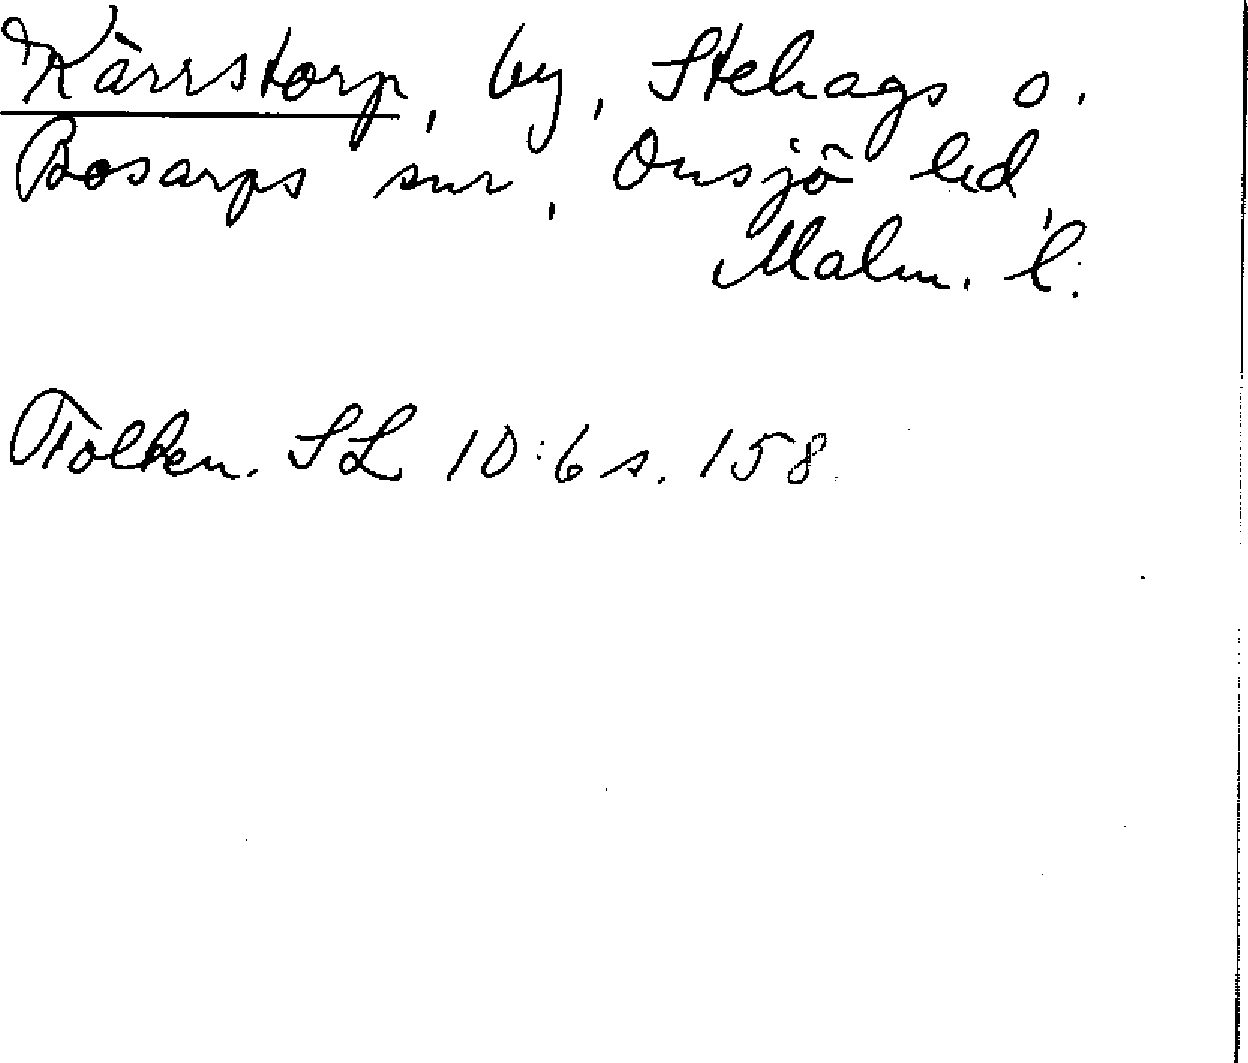 Kärrstorp, by, Stehags o.
Bosarps snr, Onsjö hd,
Malm. l.
Tolken. SL 10:6 s. 158.